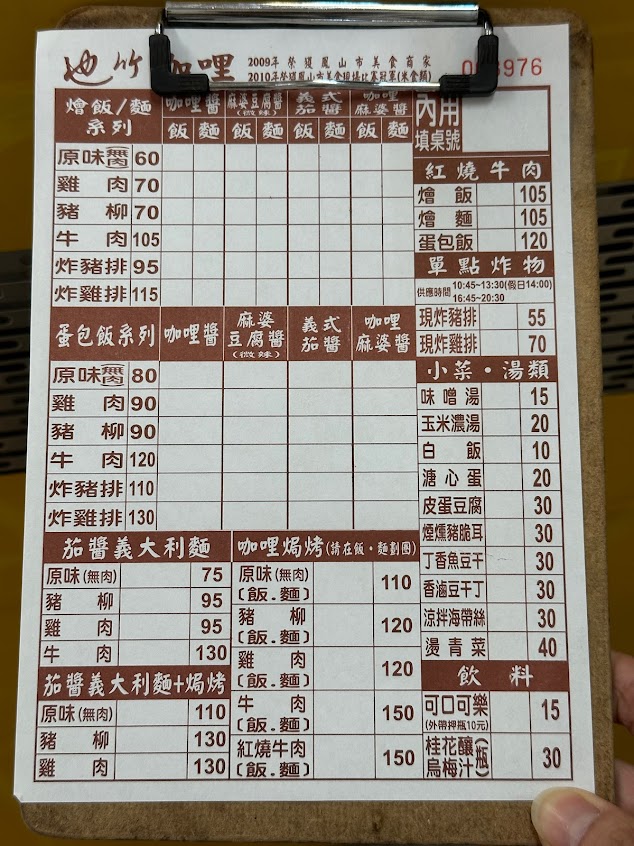 池竹咖哩
2009年 榮獲鳳山市美食商家
2010年榮獲鳳山市美食現場比賽冠軍(米食類)
燴飯/麵系列 咖哩醬 麻婆豆腐醬(微辣) 義式茄醬 咖哩麻婆醬
飯 麵 飯 麵 飯 麵 飯 麵
原味無肉 60
雞肉 70
豬柳 70
牛肉 105
炸豬排 95
炸雞排 115
蛋包飯系列 咖哩醬 麻婆豆腐醬(微辣) 義式茄醬 咖哩麻婆醬
原味無肉 80
雞肉 90
豬柳 90
牛肉 120
炸豬排 110
炸雞排 130
茄醬義大利麵
原味(無肉) 75
豬柳 95
雞肉 95
牛肉 130
茄醬義大利麵+焗烤
原味(無肉) 110
豬柳 130
雞肉 130
咖哩焗烤(請在飯・麵劃圈)
原味(無肉)
(飯.麵) 110
豬柳
(飯.麵) 120
雞肉
(飯.麵) 120
牛肉
(飯.麵) 150
紅燒牛肉
(飯.麵) 150
內用
填桌號
紅燒牛肉
燴飯 105
燴麵 105
蛋包飯 120
單點炸物
供應時間 10:45~13:30(假日14:00)
16:45~20:30
現炸豬排 55
現炸雞排 70
小菜・湯類
味噌湯 15
玉米濃湯 20
白飯 10
溏心蛋 20
皮蛋豆腐 30
煙燻豬脆耳 30
丁香魚豆干 30
香滷豆干丁 30
涼拌海帶絲 30
燙青菜 40
飲料
可口可樂 15
(外帶押瓶10元)
桂花釀烏梅汁(瓶) 30